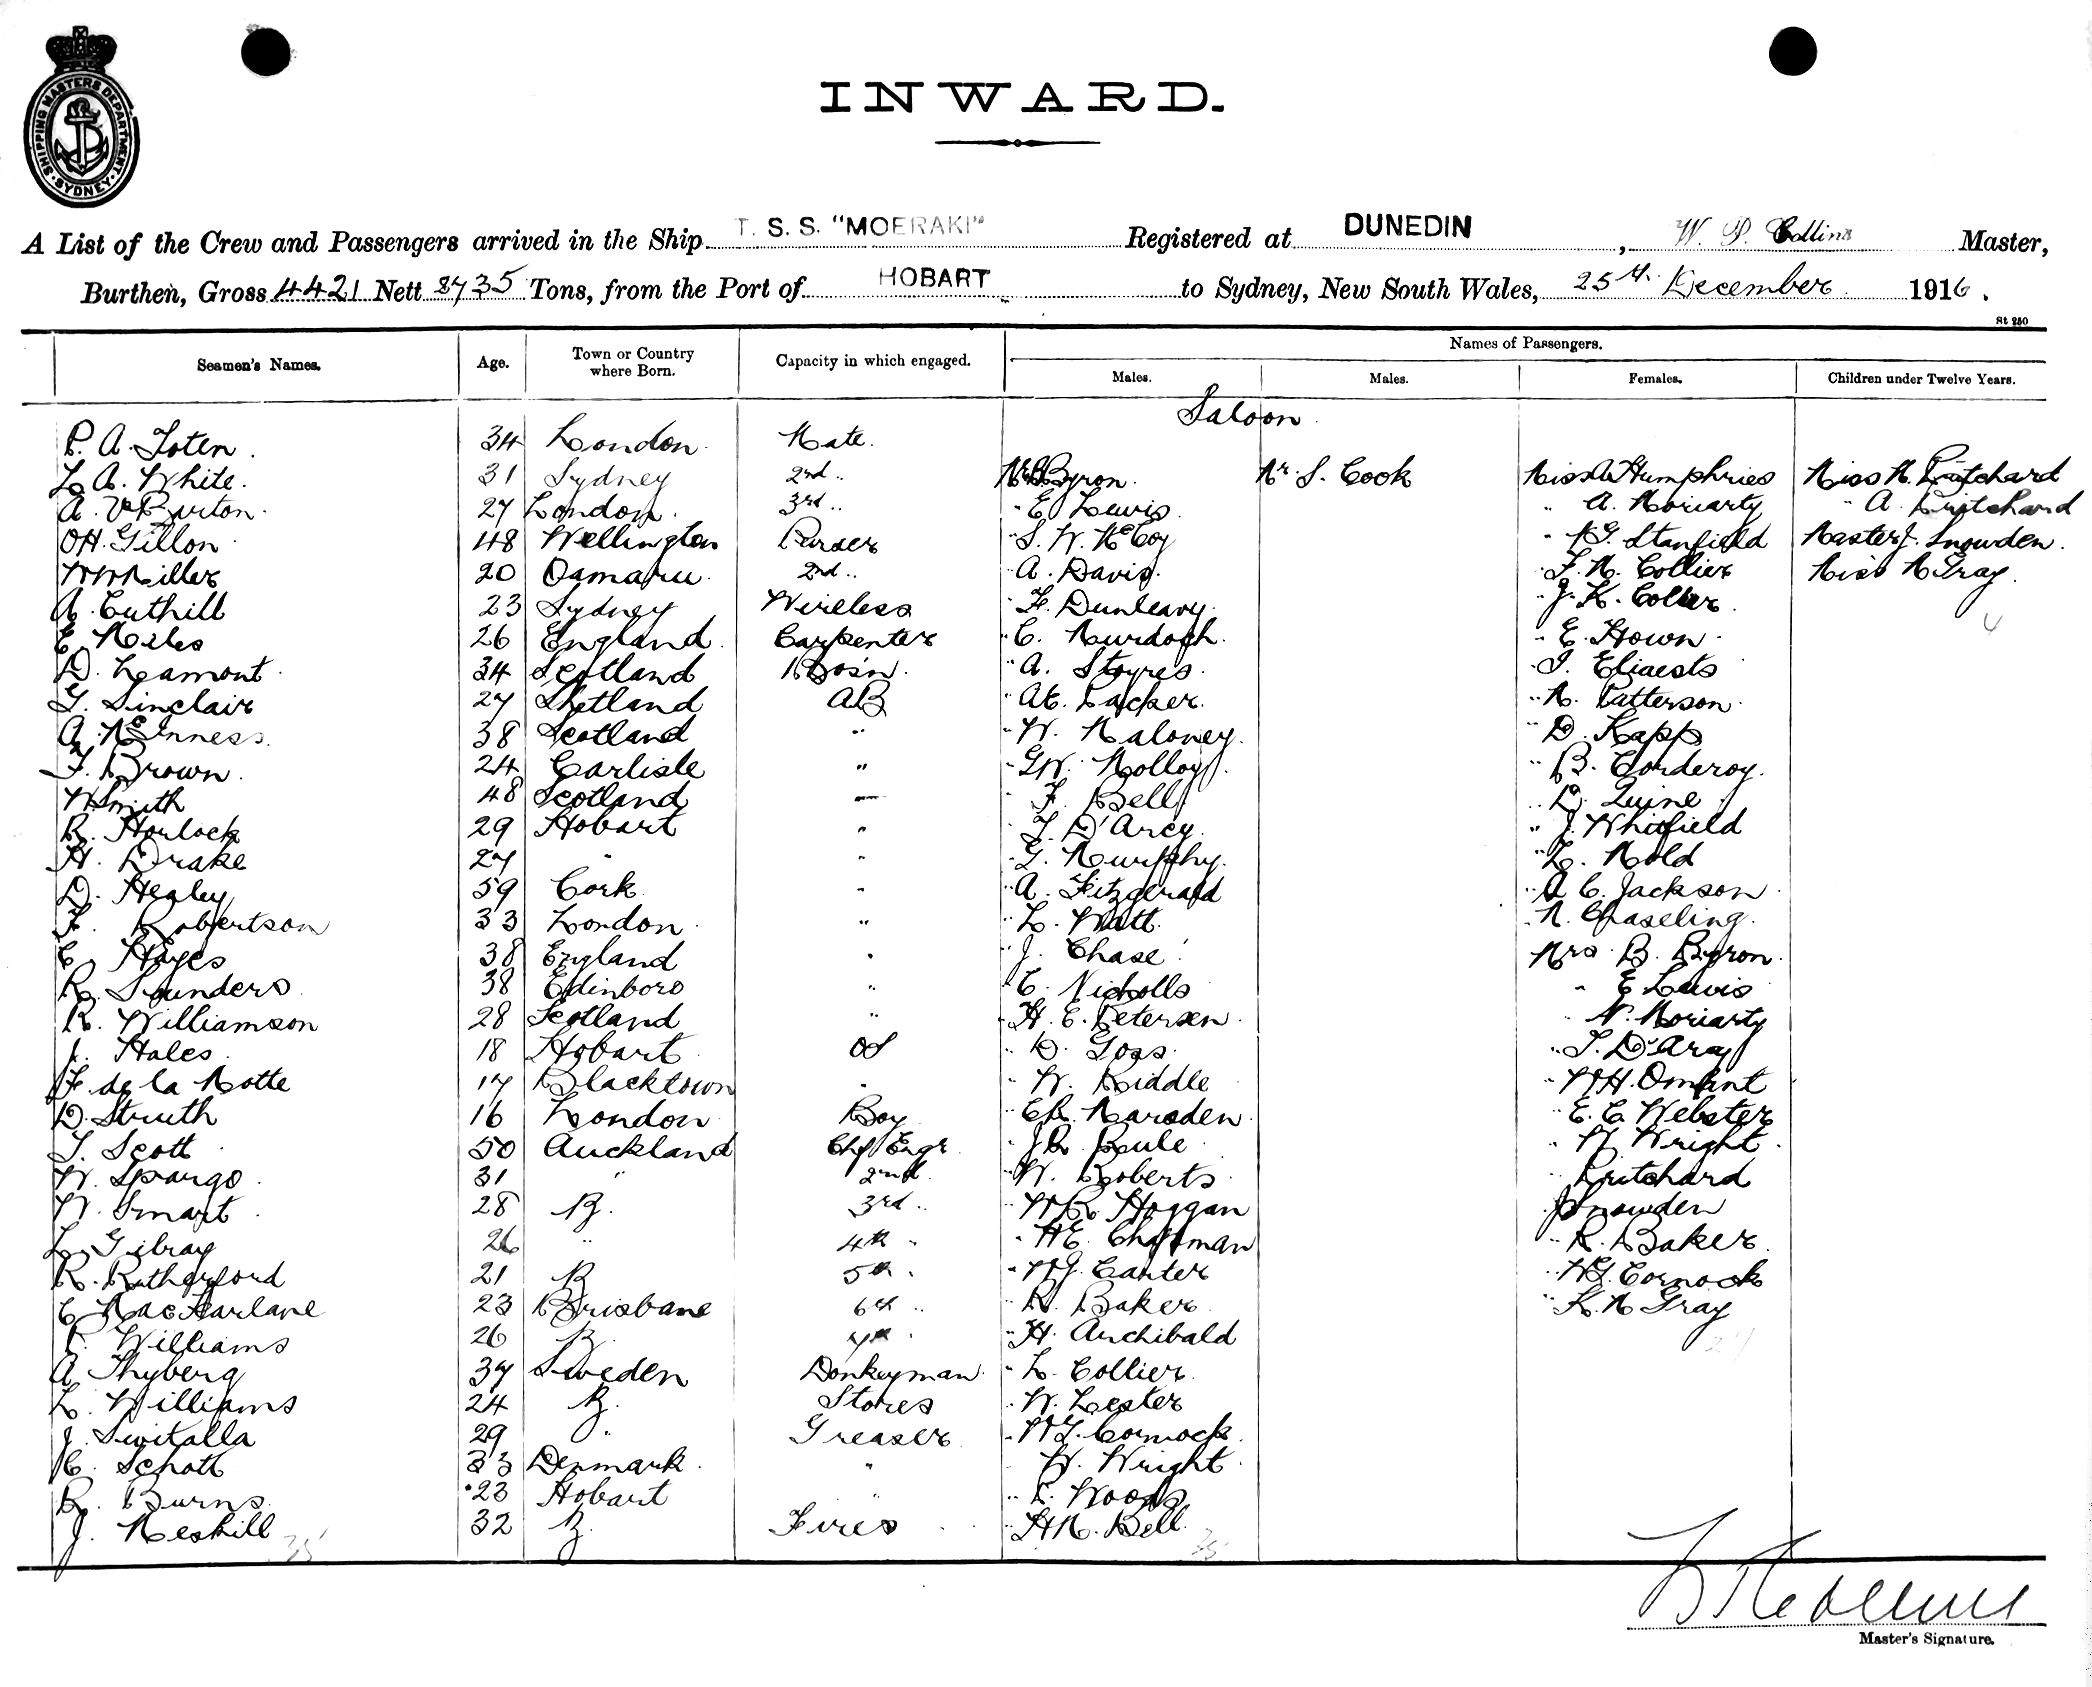 SHIPPING MASTERS DEPARTMENT
SYDNEY
INWARD.
A List of the Crew and Passengers arrived in the Ship T. S. S. "MOERAKI" Registered at DUNEDIN, W. P. Collins Master,
Burthen, Gross 4421 Nett 2735 Tons, from the Port of HOBART to Sydney, New South Wales, 25th December 1916.
St 250
Seamen's Names. Age. Town or Country where Born. Capacity in which engaged. Names of Passengers.
Males. Males. Females. Children under Twelve Years.
Saloon
P. A. Toten 34 London Mate
L. A. White 31 Sydney 2nd " Mr B Byron Mr. S. Cook Miss A Humphries Miss M. Pritchard
A. V. Burton 27 London 3rd " " E. Lewis " A. Moriarty " A. Pritchard
O H. Gillon 48 Wellington Purser " S. W. McCoy " Stanfield Master J. Snowden
W Miller 20 Oamaru 2nd " " A. Davis " F. M. Collier Miss M Gray
A. Cuthill 23 Sydney Wireless " F. Dunleavy " J. K. Collier
E. Miles 26 England Carpenter " C. Murdoch " E. Hown 4
D. Lamont 34 Scotland Bosn " A. Stoyres
G. Sinclair 27 Shetland AB " A E. Packer " M. Patterson
A. McInness 38 Scotland " " W. Maloney " D. Kapp
F. Brown 24 Carlisle " " G W. Molloy " B. Corderoy
W Smith 48 Scotland " " F. Bell " D. Quine
B. Horlock 29 Hobart " " T. D'Arcy " J. Whitfield
H. Drake 27 " " " G. Murphy " L. Mold
D. Healey 59 Cork " " A. Fitzgerald " A C. Jackson
F. Robertson 33 London " " L. Watt " M. Chaseling
C. Hayes 38 England " " J. Chase Mrs B. Byron
R. Saunders 38 Edinboro " " C. Nicholls " E Lewis
R. Williamson 28 Scotland " " H. C. Petersen " N. Moriarty
J. Hales 18 Hobart OS " D. Goss " T. D'Arcy
F. de la Motte 17 Blacktown " " W. Riddle " W H.
D. Struth 16 London Boy " C R. Marsden " E. C. Webster
T. Scott 50 Auckland Chf Engr " J R. Rule " W. Wright
W. Sprango 31 " 2nd " W. Roberts " Pritchard
W. Smart 28 NZ. 3rd " " W R. Hoggan " J Snowden
L. Gilray 26 " 4th " " H E. Chapman " R. Baker
R. Rutherford 21 NZ 5th " " W J. Carter " W J. Cornock
C MacFarlane 23 Brisbane 6th " " R. Baker " K. M Gray
Williams 26 NZ. 7th " " H. Archibald 27
A Thyberg 37 Sweden Donkeyman " L. Collier
L. Williams 24 NZ. Stores " W. Lester
J. Switalla 29 " Greaser " W J. Cornock
C. Schott 33 Denmark " " W. Wright
R. Burns 23 Hobart " " Woods
J. Meskill 35 32 NZ. Fires " H M. Bell 35
Master's Signature.